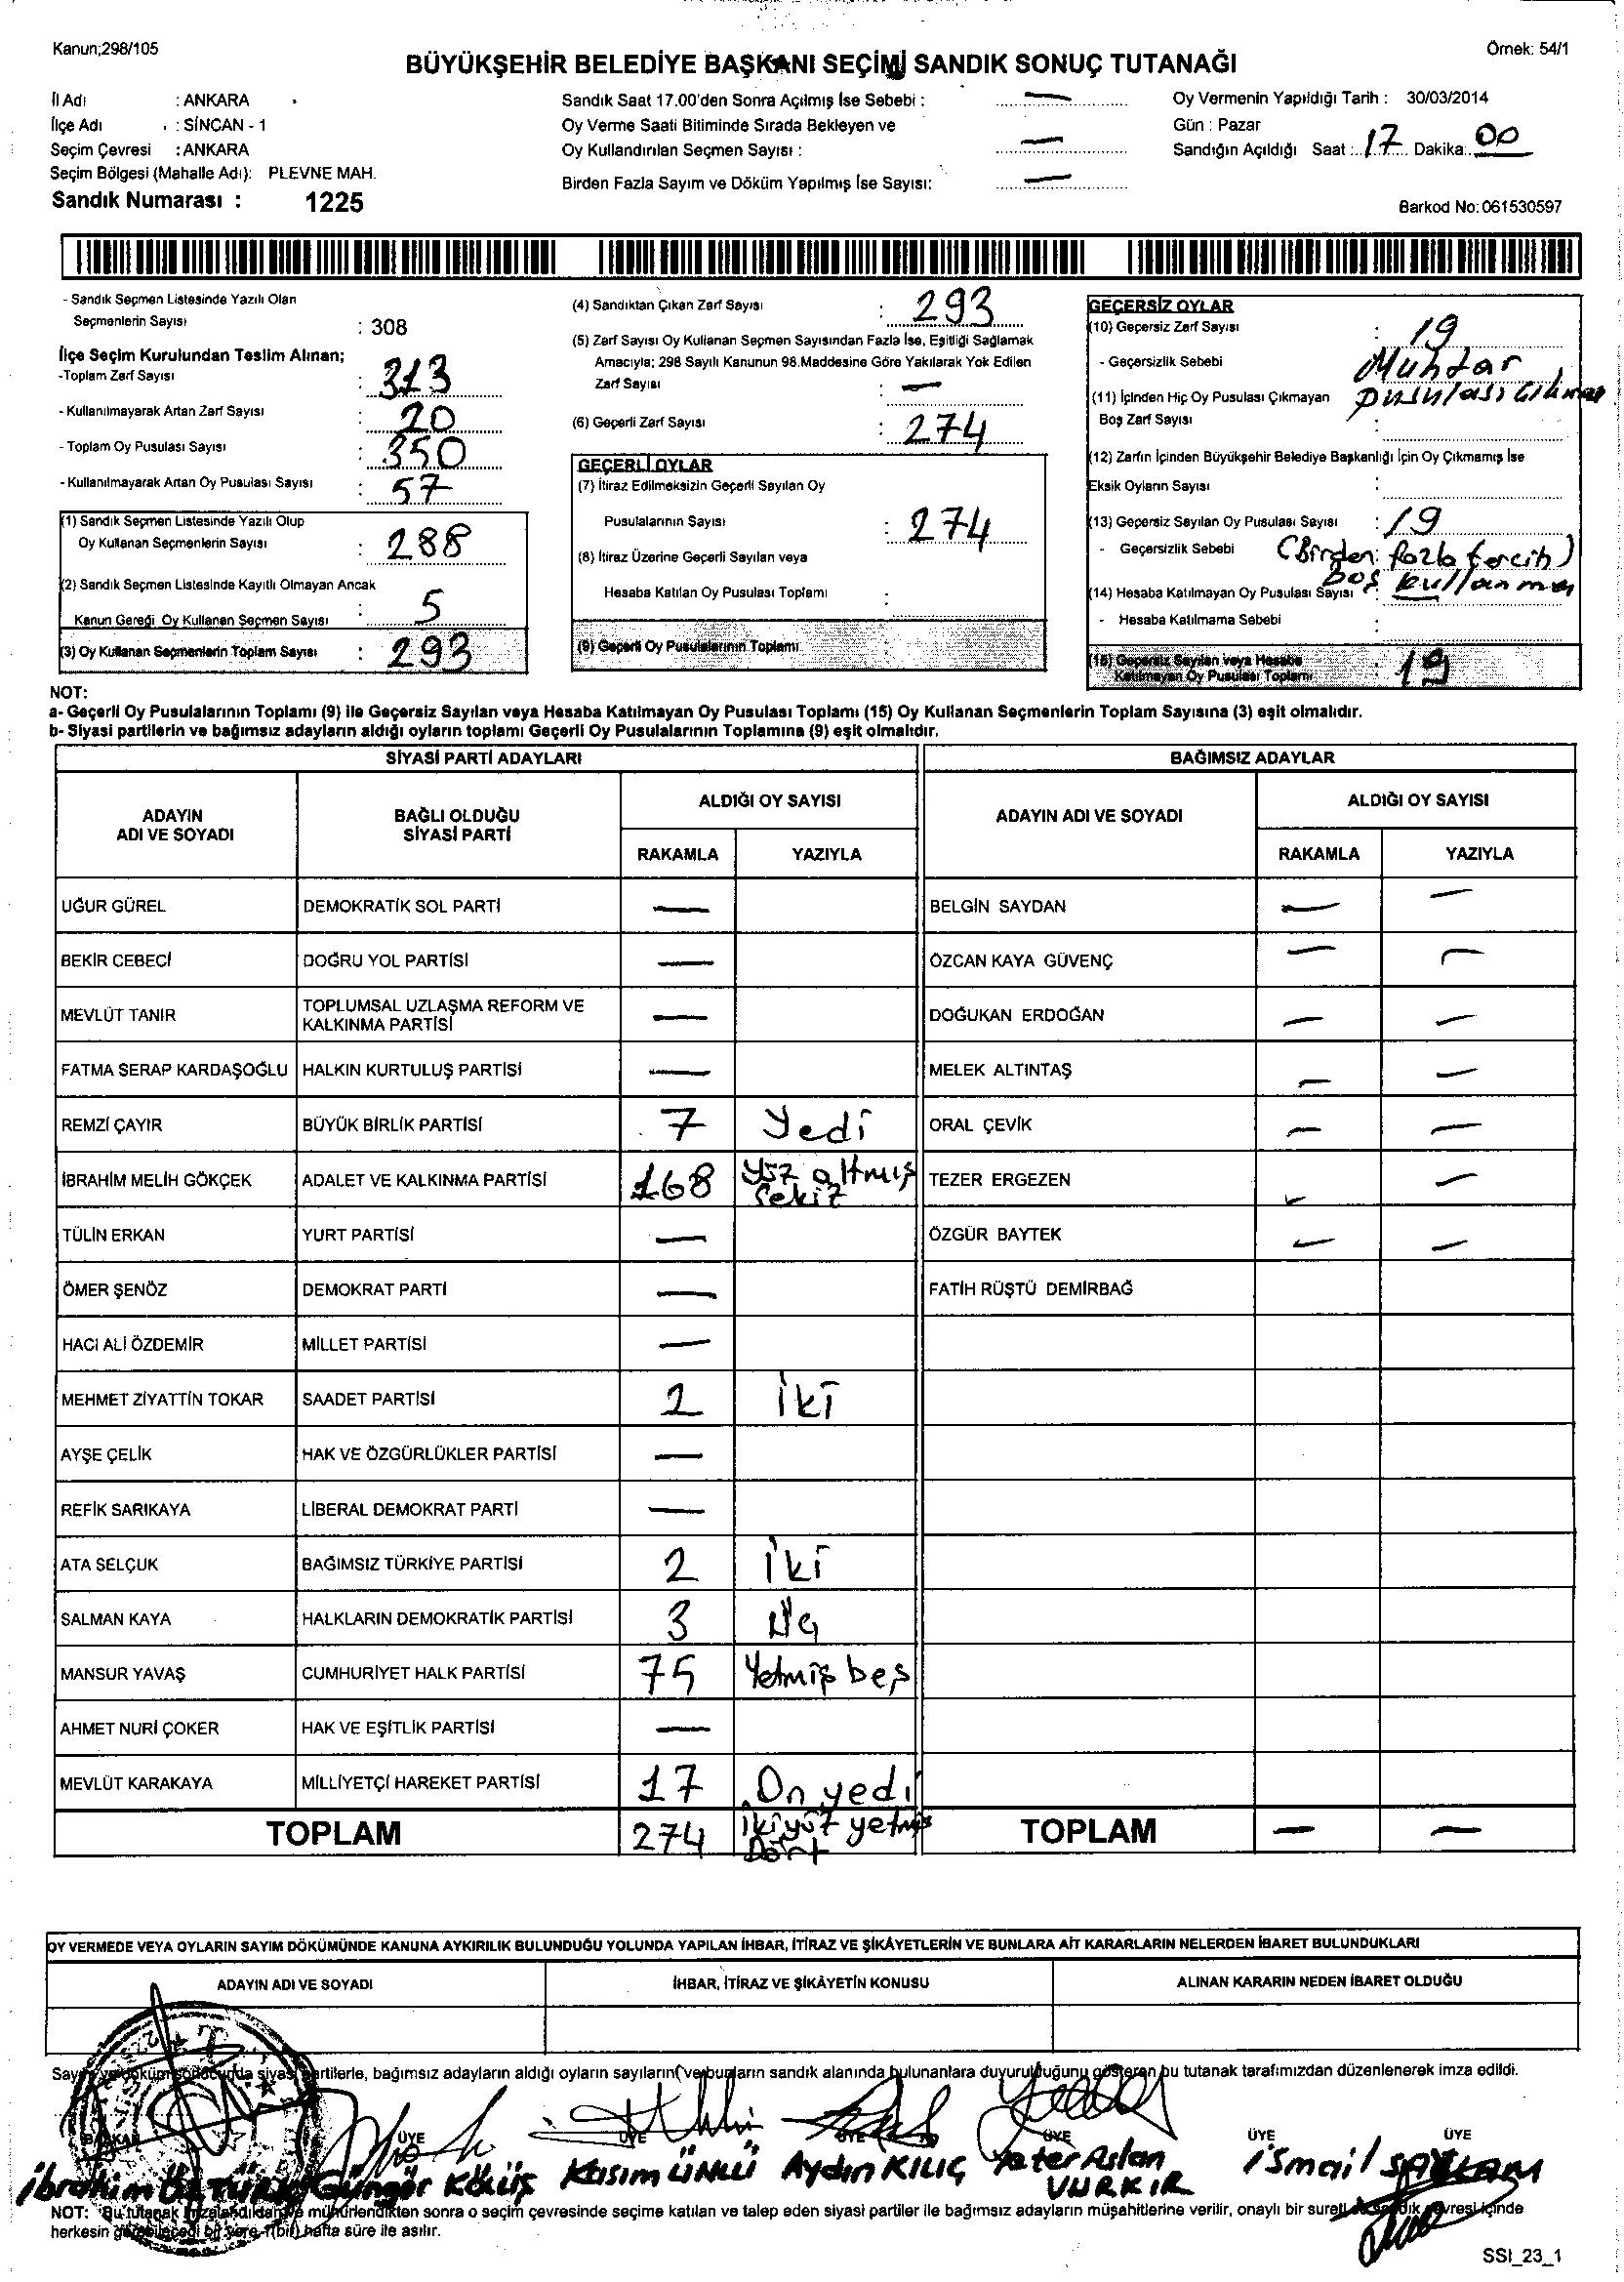 Kanun;298/105
Örnek: 54/1
BÜYÜKŞEHİR BELEDİYE BAŞKANI SEÇİMİ SANDIK SONUÇ TUTANAĞI
İl Adı : ANKARA
İlçe Adı : SİNCAN - 1
Seçim Çevresi : ANKARA
Seçim Bölgesi (Mahalle Adı): PLEVNE MAH.
Sandık Numarası : 1225
Sandık Saat 17.00'den Sonra Açılmış İse Sebebi : —
Oy Verme Saati Bitiminde Sırada Bekleyen ve
Oy Kullandırılan Seçmen Sayısı : —
Birden Fazla Sayım ve Döküm Yapılmış İse Sayısı: —
Oy Vermenin Yapıldığı Tarih : 30/03/2014
Gün : Pazar
Sandığın Açıldığı Saat : 17 Dakika: 00
Barkod No: 061530597
- Sandık Seçmen Listesinde Yazılı Olan
Seçmenlerin Sayısı : 308
İlçe Seçim Kurulundan Teslim Alınan;
-Toplam Zarf Sayısı : 313
- Kullanılmayarak Artan Zarf Sayısı : 20
- Toplam Oy Pusulası Sayısı : 350
- Kullanılmayarak Artan Oy Pusulası Sayısı : 57
(1) Sandık Seçmen Listesinde Yazılı Olup
Oy Kullanan Seçmenlerin Sayısı : 288
(2) Sandık Seçmen Listesinde Kayıtlı Olmayan Ancak
Kanun Gereği Oy Kullanan Seçmen Sayısı : 5
(3) Oy Kullanan Seçmenlerin Toplam Sayısı : 293
(4) Sandıktan Çıkan Zarf Sayısı : 293
(5) Zarf Sayısı Oy Kullanan Seçmen Sayısından Fazla İse, Eşitliği Sağlamak
Amacıyla; 298 Sayılı Kanunun 98.Maddesine Göre Yakılarak Yok Edilen
Zarf Sayısı : —
(6) Geçerli Zarf Sayısı : 274
GEÇERLİ OYLAR
(7) İtiraz Edilmeksizin Geçerli Sayılan Oy
Pusulalarının Sayısı : 274
(8) İtiraz Üzerine Geçerli Sayılan veya
Hesaba Katılan Oy Pusulası Toplamı :
(9) Geçerli Oy Pusulalarının Toplamı :
GEÇERSİZ OYLAR
(10) Geçersiz Zarf Sayısı : 19
- Geçersizlik Sebebi Muhtar
pusulası çıkma
(11) İçinden Hiç Oy Pusulası Çıkmayan
Boş Zarf Sayısı :
(12) Zarfın İçinden Büyükşehir Belediye Başkanlığı İçin Oy Çıkmamış İse
Eksik Oyların Sayısı :
(13) Geçersiz Sayılan Oy Pusulası Sayısı : 19
- Geçersizlik Sebebi (Birden fazla tercih)
boş kullanma
(14) Hesaba Katılmayan Oy Pusulası Sayısı :
- Hesaba Katılmama Sebebi :
(15) Geçersiz Sayılan veya Hesaba
Katılmayan Oy Pusulası Toplamı : 19
NOT:
a- Geçerli Oy Pusulalarının Toplamı (9) ile Geçersiz Sayılan veya Hesaba Katılmayan Oy Pusulası Toplamı (15) Oy Kullanan Seçmenlerin Toplam Sayısına (3) eşit olmalıdır.
b- Siyasi partilerin ve bağımsız adayların aldığı oyların toplamı Geçerli Oy Pusulalarının Toplamına (9) eşit olmalıdır.
SİYASİ PARTİ ADAYLARI BAĞIMSIZ ADAYLAR
ADAYIN
ADI VE SOYADI
BAĞLI OLDUĞU
SİYASİ PARTİ
ALDIĞI OY SAYISI
RAKAMLA YAZIYLA
ADAYIN ADI VE SOYADI
ALDIĞI OY SAYISI
RAKAMLA YAZIYLA
UĞUR GÜREL DEMOKRATİK SOL PARTİ — BELGİN SAYDAN — —
BEKİR CEBECİ DOĞRU YOL PARTİSİ — ÖZCAN KAYA GÜVENÇ — —
MEVLÜT TANIR TOPLUMSAL UZLAŞMA REFORM VE
KALKINMA PARTİSİ — DOĞUKAN ERDOĞAN — —
FATMA SERAP KARDAŞOĞLU HALKIN KURTULUŞ PARTİSİ — MELEK ALTINTAŞ — —
REMZİ ÇAYIR BÜYÜK BİRLİK PARTİSİ 7 Yedi ORAL ÇEVİK — —
İBRAHİM MELİH GÖKÇEK ADALET VE KALKINMA PARTİSİ 168 yüz altmış
sekiz TEZER ERGEZEN — —
TÜLİN ERKAN YURT PARTİSİ — ÖZGÜR BAYTEK — —
ÖMER ŞENÖZ DEMOKRAT PARTİ — FATİH RÜŞTÜ DEMİRBAĞ
HACI ALİ ÖZDEMİR MİLLET PARTİSİ —
MEHMET ZİYATTİN TOKAR SAADET PARTİSİ 2 iki
AYŞE ÇELİK HAK VE ÖZGÜRLÜKLER PARTİSİ —
REFİK SARIKAYA LİBERAL DEMOKRAT PARTİ —
ATA SELÇUK BAĞIMSIZ TÜRKİYE PARTİSİ 2 iki
SALMAN KAYA HALKLARIN DEMOKRATİK PARTİSİ 3 üç
MANSUR YAVAŞ CUMHURİYET HALK PARTİSİ 75 Yetmiş beş
AHMET NURİ ÇOKER HAK VE EŞİTLİK PARTİSİ —
MEVLÜT KARAKAYA MİLLİYETÇİ HAREKET PARTİSİ 17 On yedi
TOPLAM 274 ikiyüz yetmiş
Dört TOPLAM — —
OY VERMEDE VEYA OYLARIN SAYIM DÖKÜMÜNDE KANUNA AYKIRILIK BULUNDUĞU YOLUNDA YAPILAN İHBAR, İTİRAZ VE ŞİKÂYETLERİN VE BUNLARA AİT KARARLARIN NELERDEN İBARET BULUNDUKLARI
ADAYIN ADI VE SOYADI İHBAR, İTİRAZ VE ŞİKÂYETİN KONUSU ALINAN KARARIN NEDEN İBARET OLDUĞU
Sayım ve döküm sonucunda siyasi partilerle, bağımsız adayların aldığı oyların sayılarını ve bunların sandık alanında bulunanlara duyurulduğunu gösteren bu tutanak tarafımızdan düzenlenerek imza edildi.
BAŞKAN ÜYE ÜYE ÜYE ÜYE ÜYE ÜYE
İbrahim Güngör Kasım ÜNLÜ Aydın KILIÇ Yeter Aslan
VURKIR İsmail SAĞLAM
NOT: Bu tutanak imzalandıktan ve mühürlendikten sonra o seçim çevresinde seçime katılan ve talep eden siyasi partiler ile bağımsız adayların müşahitlerine verilir, onaylı bir sureti de sandık çevresi içinde
herkesin görebileceği bir yere 1(bir) hafta süre ile asılır.
SSI_23_1